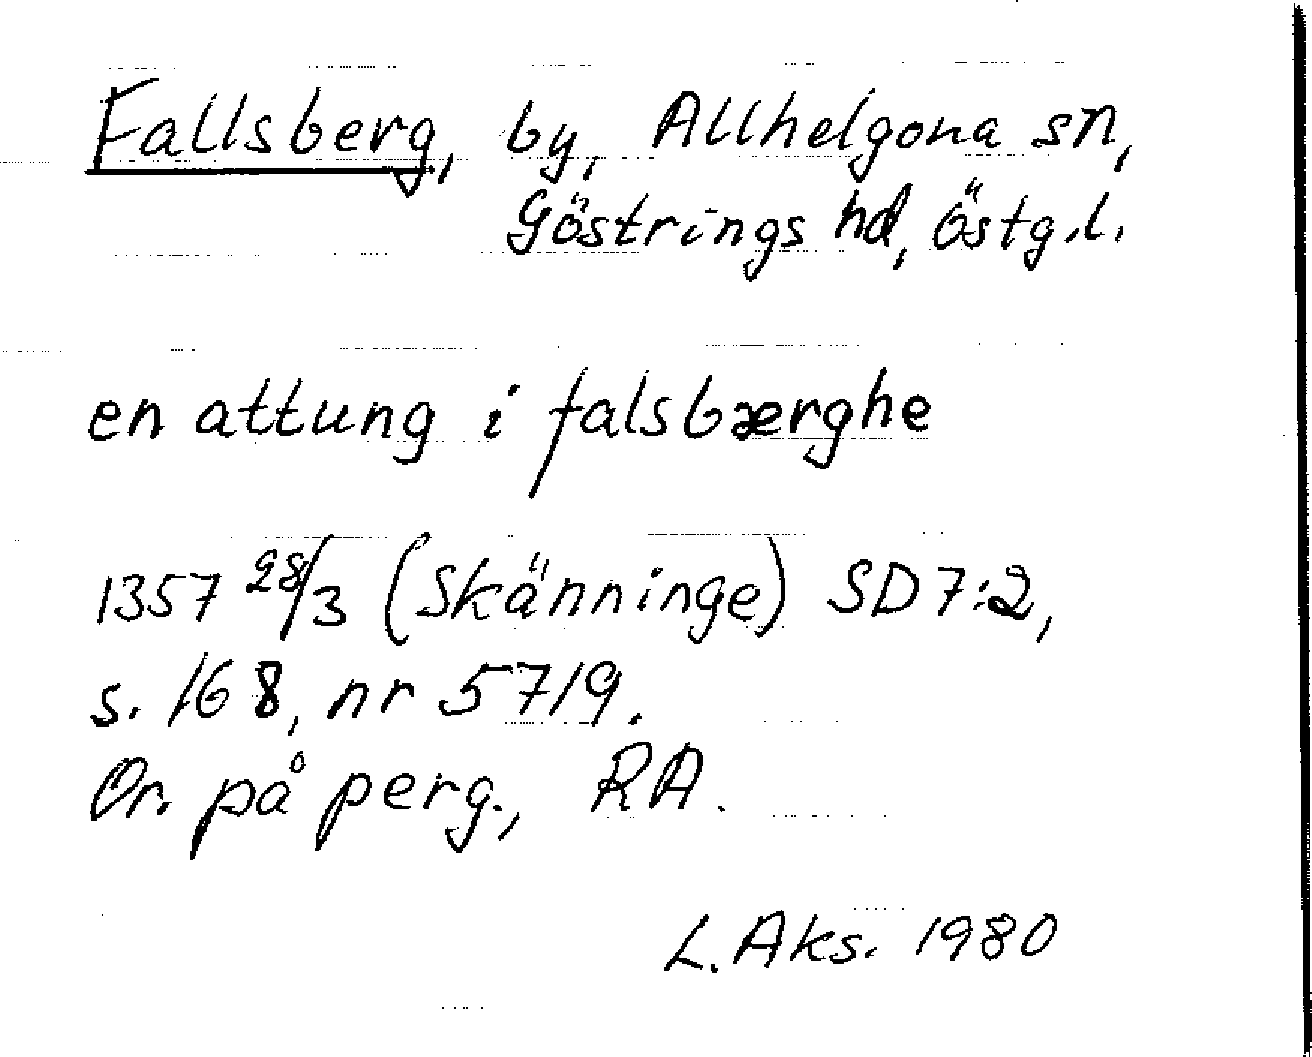 Fallsberg, by, Allhelgona sn,
Göstrings hd, Östg.l.
en attung i falsbærghe
1357 28/3 (Skänninge) SD 7:2,
s. 168, nr 5719.
Or. på perg., RA.
L. Aks. 1980